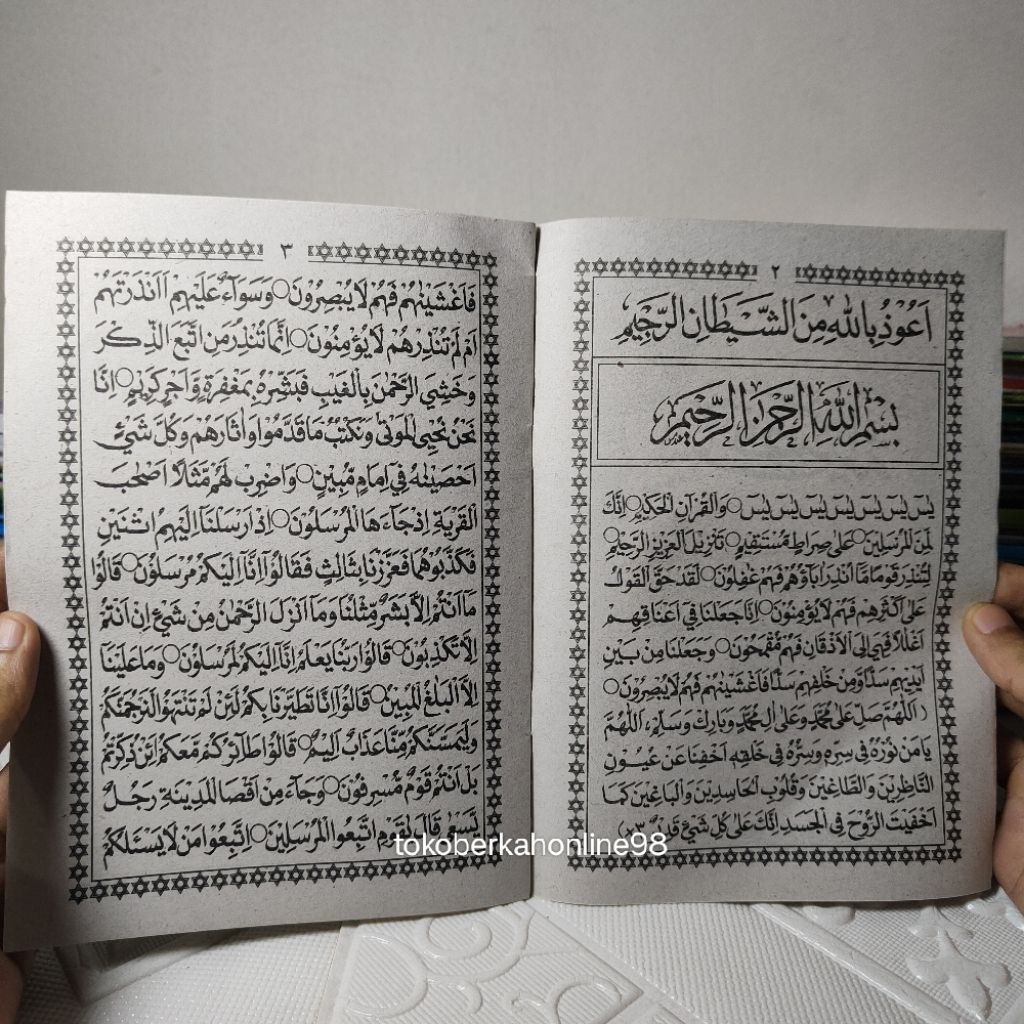 ٢
اَعُوْذُ بِاللهِ مِنَ الشَّيْطَانِ الرَّجِيْمِ
بِسْمِ اللهِ الرَّحْمٰنِ الرَّحِيْمِ
يٰسۤ يٰسۤ يٰسۤ يٰسۤ يٰسۤ يٰسۤ يٰسۤ ○ وَالْقُرْاٰنِ الْحَكِيْمِ ○ اِنَّكَ
لَمِنَ الْمُرْسَلِيْنَ ○ عَلٰى صِرَاطٍ مُسْتَقِيْمٍ ○ تَنْزِيْلَ الْعَزِيْزِ الرَّحِيْمِ ○
لِتُنْذِرَ قَوْمًا مَّا اُنْذِرَ اٰبَاؤُهُمْ فَهُمْ غٰفِلُوْنَ ○ لَقَدْ حَقَّ الْقَوْلُ
عَلٰى اَكْثَرِهِمْ فَهُمْ لَا يُؤْمِنُوْنَ ○ اِنَّا جَعَلْنَا فِيْ اَعْنَاقِهِمْ
اَغْلٰلًا فَهِيَ اِلَى الْاَذْقَانِ فَهُمْ مُّقْمَحُوْنَ ○ وَجَعَلْنَا مِنْ بَيْنِ
اَيْدِيْهِمْ سَدًّا وَّمِنْ خَلْفِهِمْ سَدًّا فَاَغْشَيْنٰهُمْ فَهُمْ لَا يُبْصِرُوْنَ ○
( اَللّٰهُمَّ صَلِّ عَلٰى مُحَمَّدٍ وَعَلٰى اٰلِ مُحَمَّدٍ وَبَارِكْ وَسَلِّمْ ، اَللّٰهُمَّ
يَا مَنْ نُوْرُهُ فِيْ سِرِّهِ وَسِرُّهُ فِيْ خَلْقِهِ اَخْفِنَا عَنْ عُيُوْنِ
النَّاظِرِيْنَ وَالطَّاغِيْنَ وَقُلُوْبِ الْحَاسِدِيْنَ وَالْبَاغِيْنَ كَمَا
اَخْفَيْتَ الرُّوْحَ فِي الْجَسَدِ اِنَّكَ عَلٰى كُلِّ شَيْءٍ قَدِيْرٌ ٣× )
٣
فَاَغْشَيْنٰهُمْ فَهُمْ لَا يُبْصِرُوْنَ ○ وَسَوَاۤءٌ عَلَيْهِمْ ءَاَنْذَرْتَهُمْ
اَمْ لَمْ تُنْذِرْهُمْ لَا يُؤْمِنُوْنَ ○ اِنَّمَا تُنْذِرُ مَنِ اتَّبَعَ الذِّكْرَ
وَخَشِيَ الرَّحْمٰنَ بِالْغَيْبِ فَبَشِّرْهُ بِمَغْفِرَةٍ وَّاَجْرٍ كَرِيْمٍ ○ اِنَّا
نَحْنُ نُحْيِي الْمَوْتٰى وَنَكْتُبُ مَا قَدَّمُوْا وَاٰثَارَهُمْ وَكُلَّ شَيْءٍ
اَحْصَيْنٰهُ فِيْ اِمَامٍ مُّبِيْنٍ ○ وَاضْرِبْ لَهُمْ مَّثَلًا اَصْحٰبَ
الْقَرْيَةِ اِذْ جَاۤءَهَا الْمُرْسَلُوْنَ ○ اِذْ اَرْسَلْنَا اِلَيْهِمُ اثْنَيْنِ
فَكَذَّبُوْهُمَا فَعَزَّزْنَا بِثَالِثٍ فَقَالُوْا اِنَّا اِلَيْكُمْ مُّرْسَلُوْنَ ○ قَالُوْا
مَا اَنْتُمْ اِلَّا بَشَرٌ مِّثْلُنَا وَمَا اَنْزَلَ الرَّحْمٰنُ مِنْ شَيْءٍ اِنْ اَنْتُمْ
اِلَّا تَكْذِبُوْنَ ○ قَالُوْا رَبُّنَا يَعْلَمُ اِنَّا اِلَيْكُمْ لَمُرْسَلُوْنَ ○ وَمَا عَلَيْنَا
اِلَّا الْبَلٰغُ الْمُبِيْنُ ○ قَالُوْا اِنَّا تَطَيَّرْنَا بِكُمْ لَئِنْ لَّمْ تَنْتَهُوْا لَنَرْجُمَنَّكُمْ
وَلَيَمَسَّنَّكُمْ مِّنَّا عَذَابٌ اَلِيْمٌ ○ قَالُوْا طَاۤئِرُكُمْ مَّعَكُمْ اَئِنْ ذُكِّرْتُمْ
بَلْ اَنْتُمْ قَوْمٌ مُّسْرِفُوْنَ ○ وَجَاۤءَ مِنْ اَقْصَا الْمَدِيْنَةِ رَجُلٌ
يَّسْعٰى قَالَ يٰقَوْمِ اتَّبِعُوا الْمُرْسَلِيْنَ ○ اِتَّبِعُوْا مَنْ لَا يَسْئَلُكُمْ
tokoberkahonline98